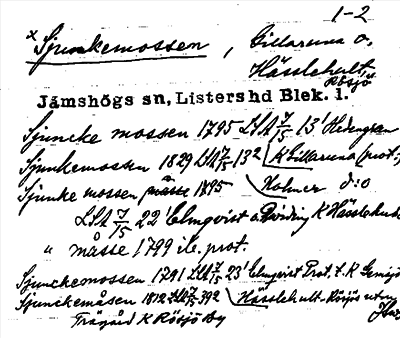 1-2
x Sjunkemossen, Gillaruna o.
Hässlehult,
Rösjö
Jämshögs sn, Listers hd Blek. l.
Sjuncke mossen 1795 LSA 7/5 13¹
Sjunkemossen 1829 LSA 7/5 13² K Gillaruna (prot.)
Sjunke mossen 1895 Holmer d:o
LSA 7/5 22¹ Elmqvist K Hässlehult
" måsse 1799 ib. prot.
Sjunckemossen 1791 LSA 7/5 23¹ Elmqvist Prot. t. K
Sjunckemåsen 1812 LSA 7/5 392 Hässlehult - Rösjö
Trägård K Rösjö by